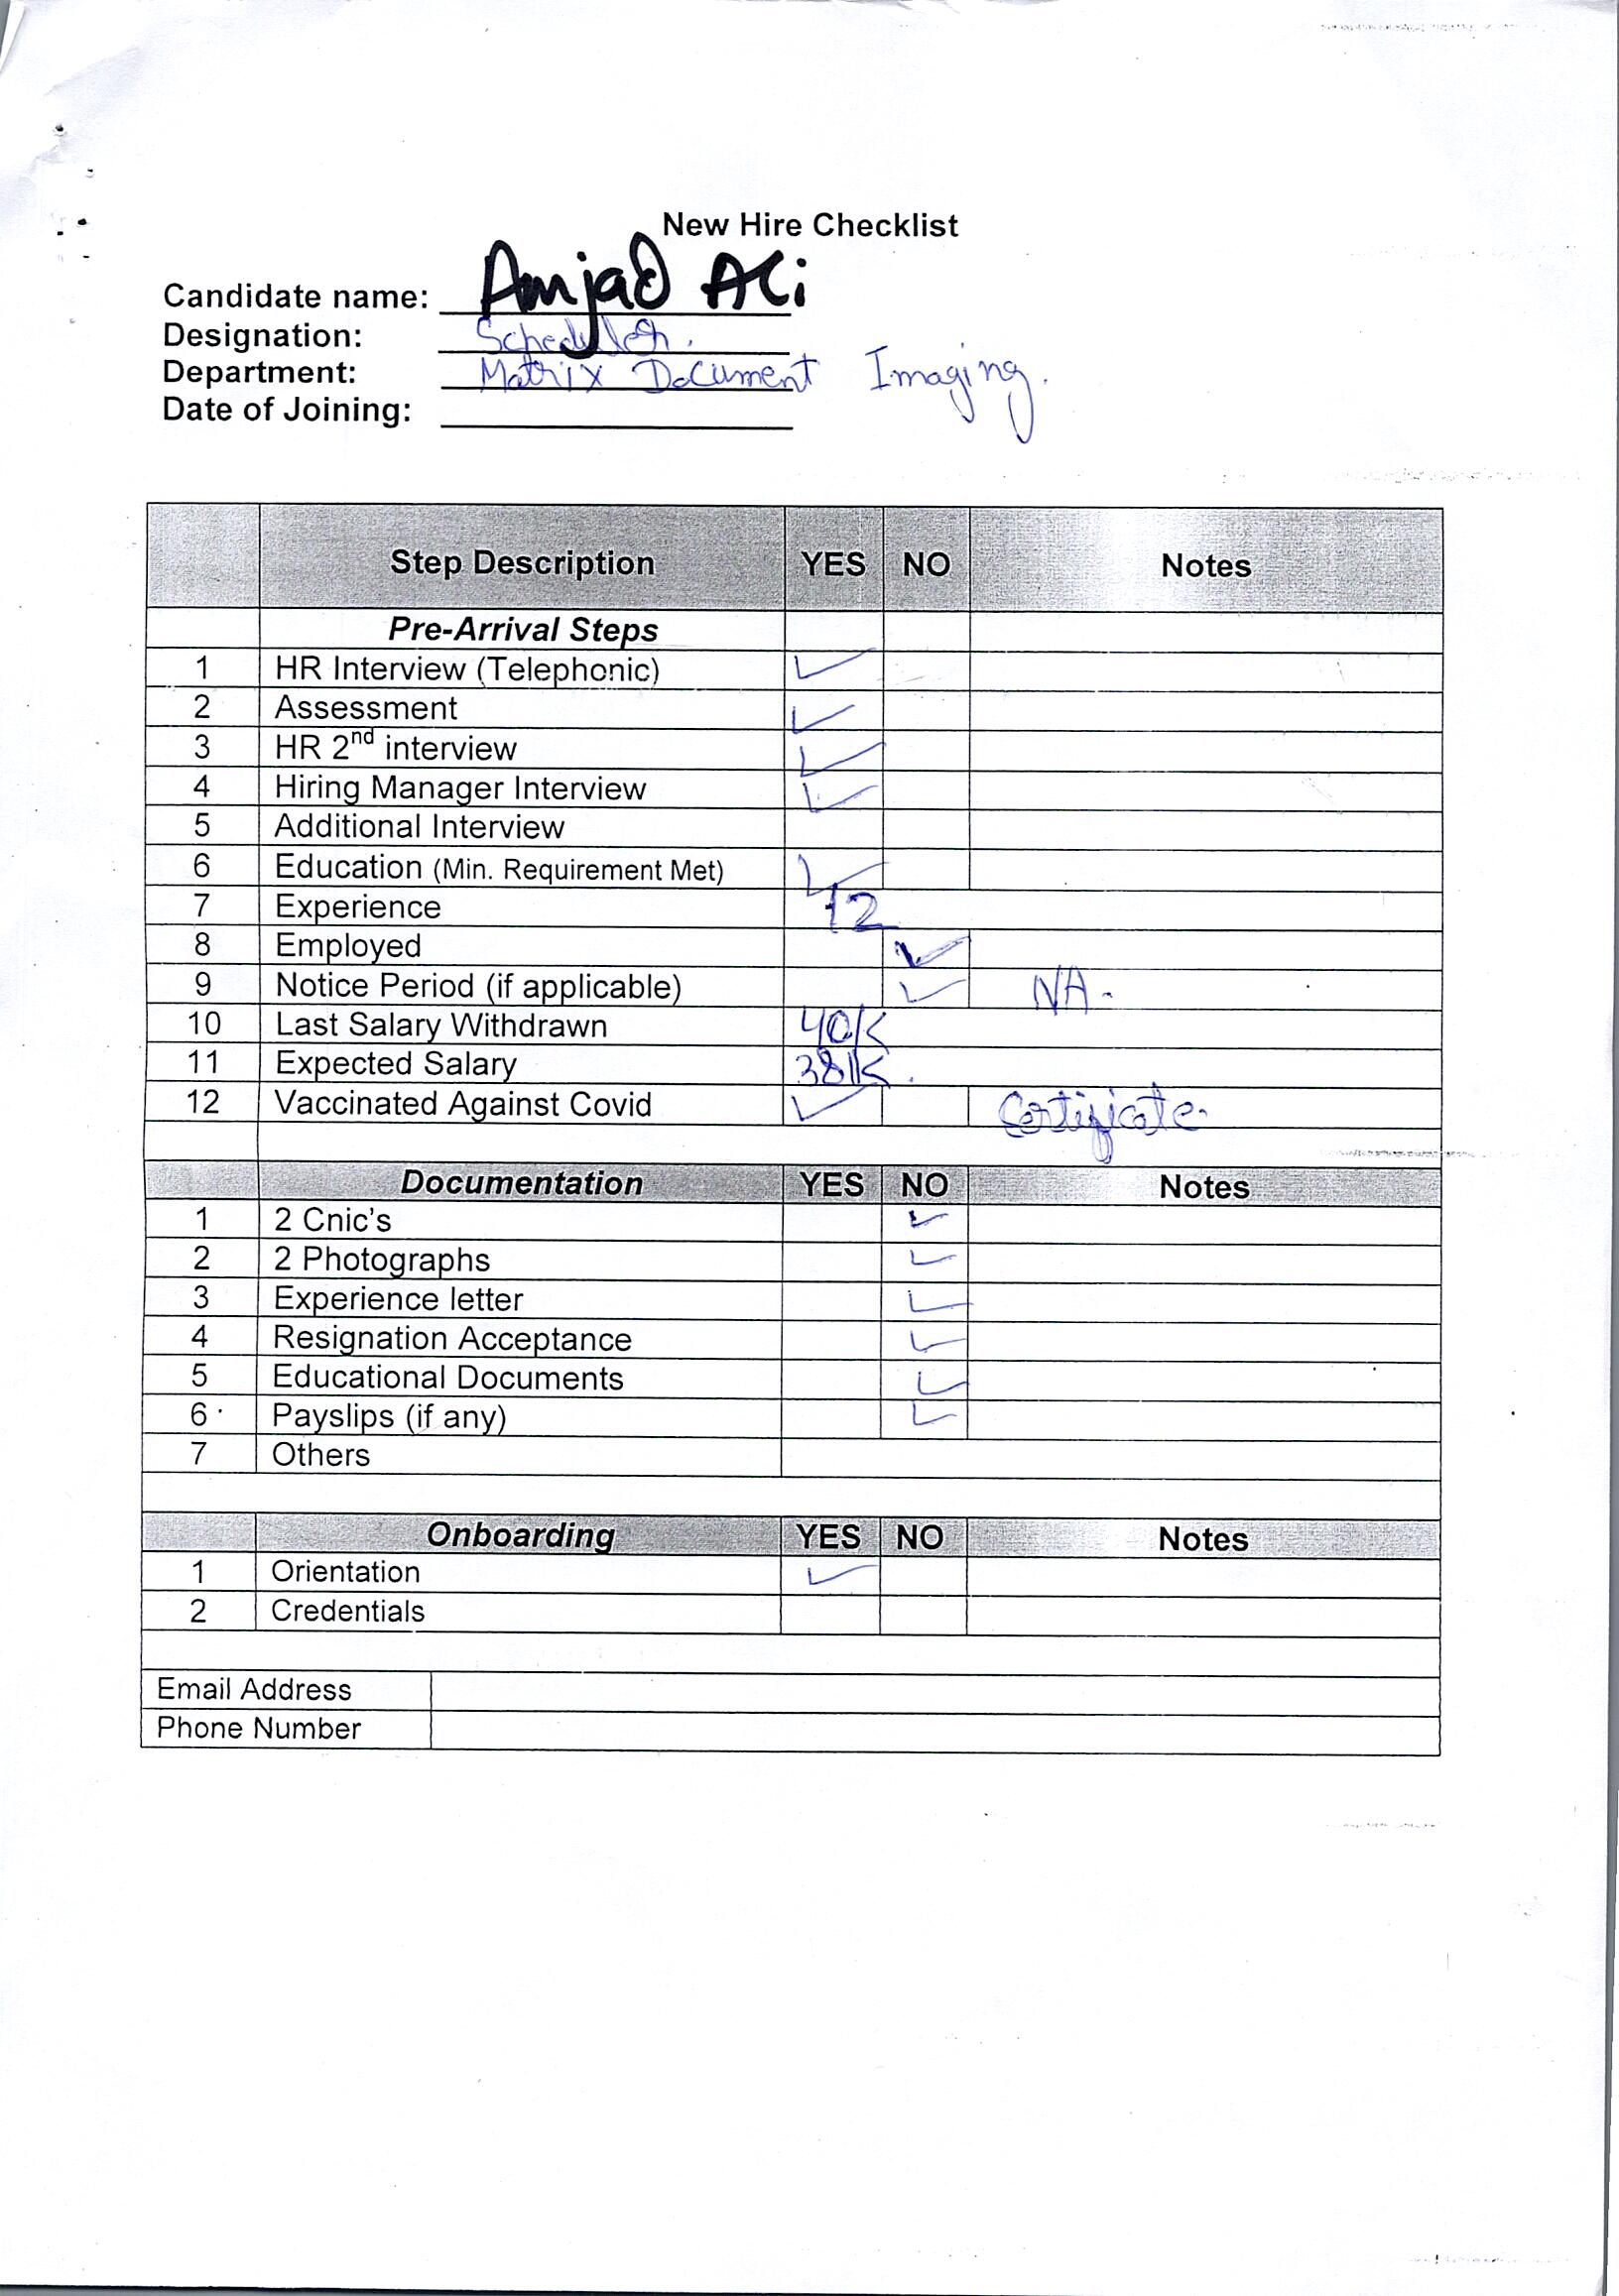 New Hire Checklist
Candidate name: Amjad Ali
Designation: Scheduler.
Department: Matrix Document Imaging.
Date of Joining:
Step Description YES NO Notes
Pre-Arrival Steps
1 HR Interview (Telephonic) ✓
2 Assessment ✓
3 HR 2nd interview ✓
4 Hiring Manager Interview ✓
5 Additional Interview
6 Education (Min. Requirement Met) ✓
7 Experience 12
8 Employed ✓
9 Notice Period (if applicable) ✓ NA.
10 Last Salary Withdrawn 40K
11 Expected Salary 38K.
12 Vaccinated Against Covid ✓ Certificate.
Documentation YES NO Notes
1 2 Cnic's ✓
2 2 Photographs ✓
3 Experience letter ✓
4 Resignation Acceptance ✓
5 Educational Documents ✓
6 Payslips (if any) ✓
7 Others
Onboarding YES NO Notes
1 Orientation ✓
2 Credentials
Email Address
Phone Number